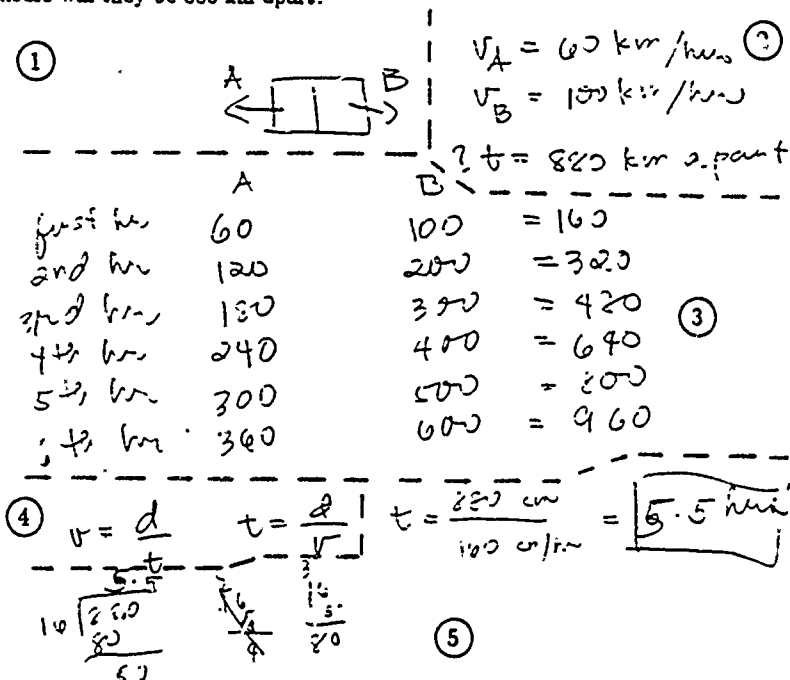 hours will they be 880 km apart.
① A B
v_A = 60 km/hr ②
v_B = 100 km/hr
? t = 880 km apart
A B
first hr 60 100 = 160
2nd hr 120 200 = 320
3rd hr 180 300 = 480
4th hr 240 400 = 640
5th hr 300 500 = 800
hr 360 600 = 960
③
④ v = d/t t = d/v t = 880 / 160 = 5.5
5.5
16 880
80
80
⑤